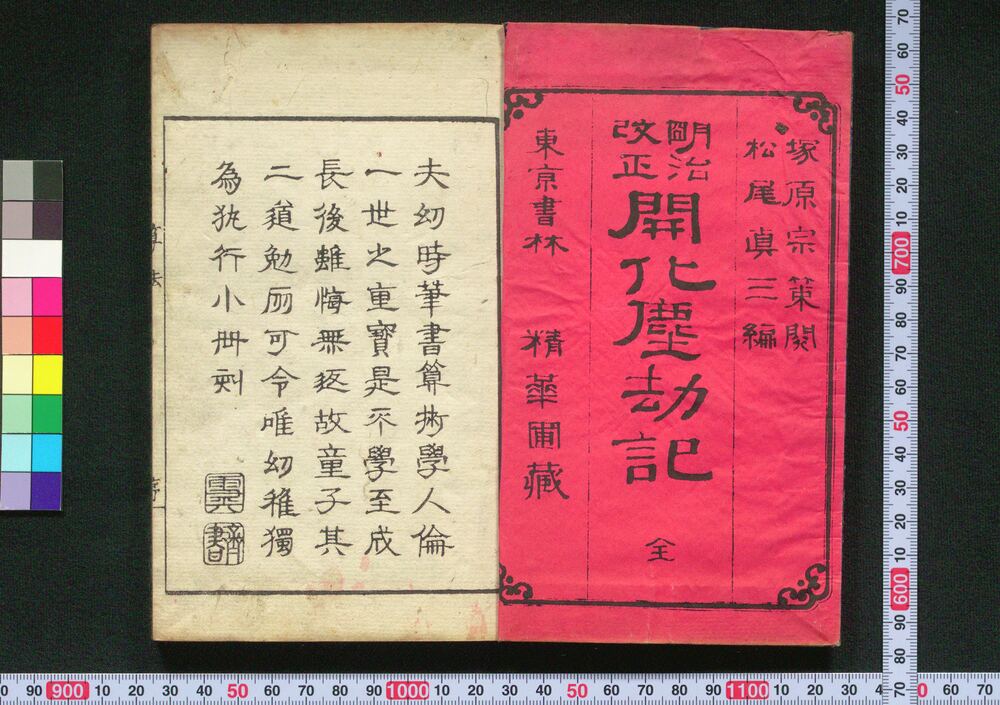 塚原宗策閲
松尾眞三編
明治
改正
開化塵劫記
全
東京書林
精華圃藏
夫幼時筆書算術學人倫
一世之重寶是不學至成
長後雖悔無返故童子其
二道勉励可令唯幼稚獨
為執行小冊刻
算法
序一
70 60 50 40 30 20 10 700 90 80 70 60 50 40 30 20 10 600 90 80 70
0 90 900 10 20 30 40 50 60 70 80 90 1000 10 20 30 40 50 60 70 80 90 1100 10 20 30 4
0 60 70